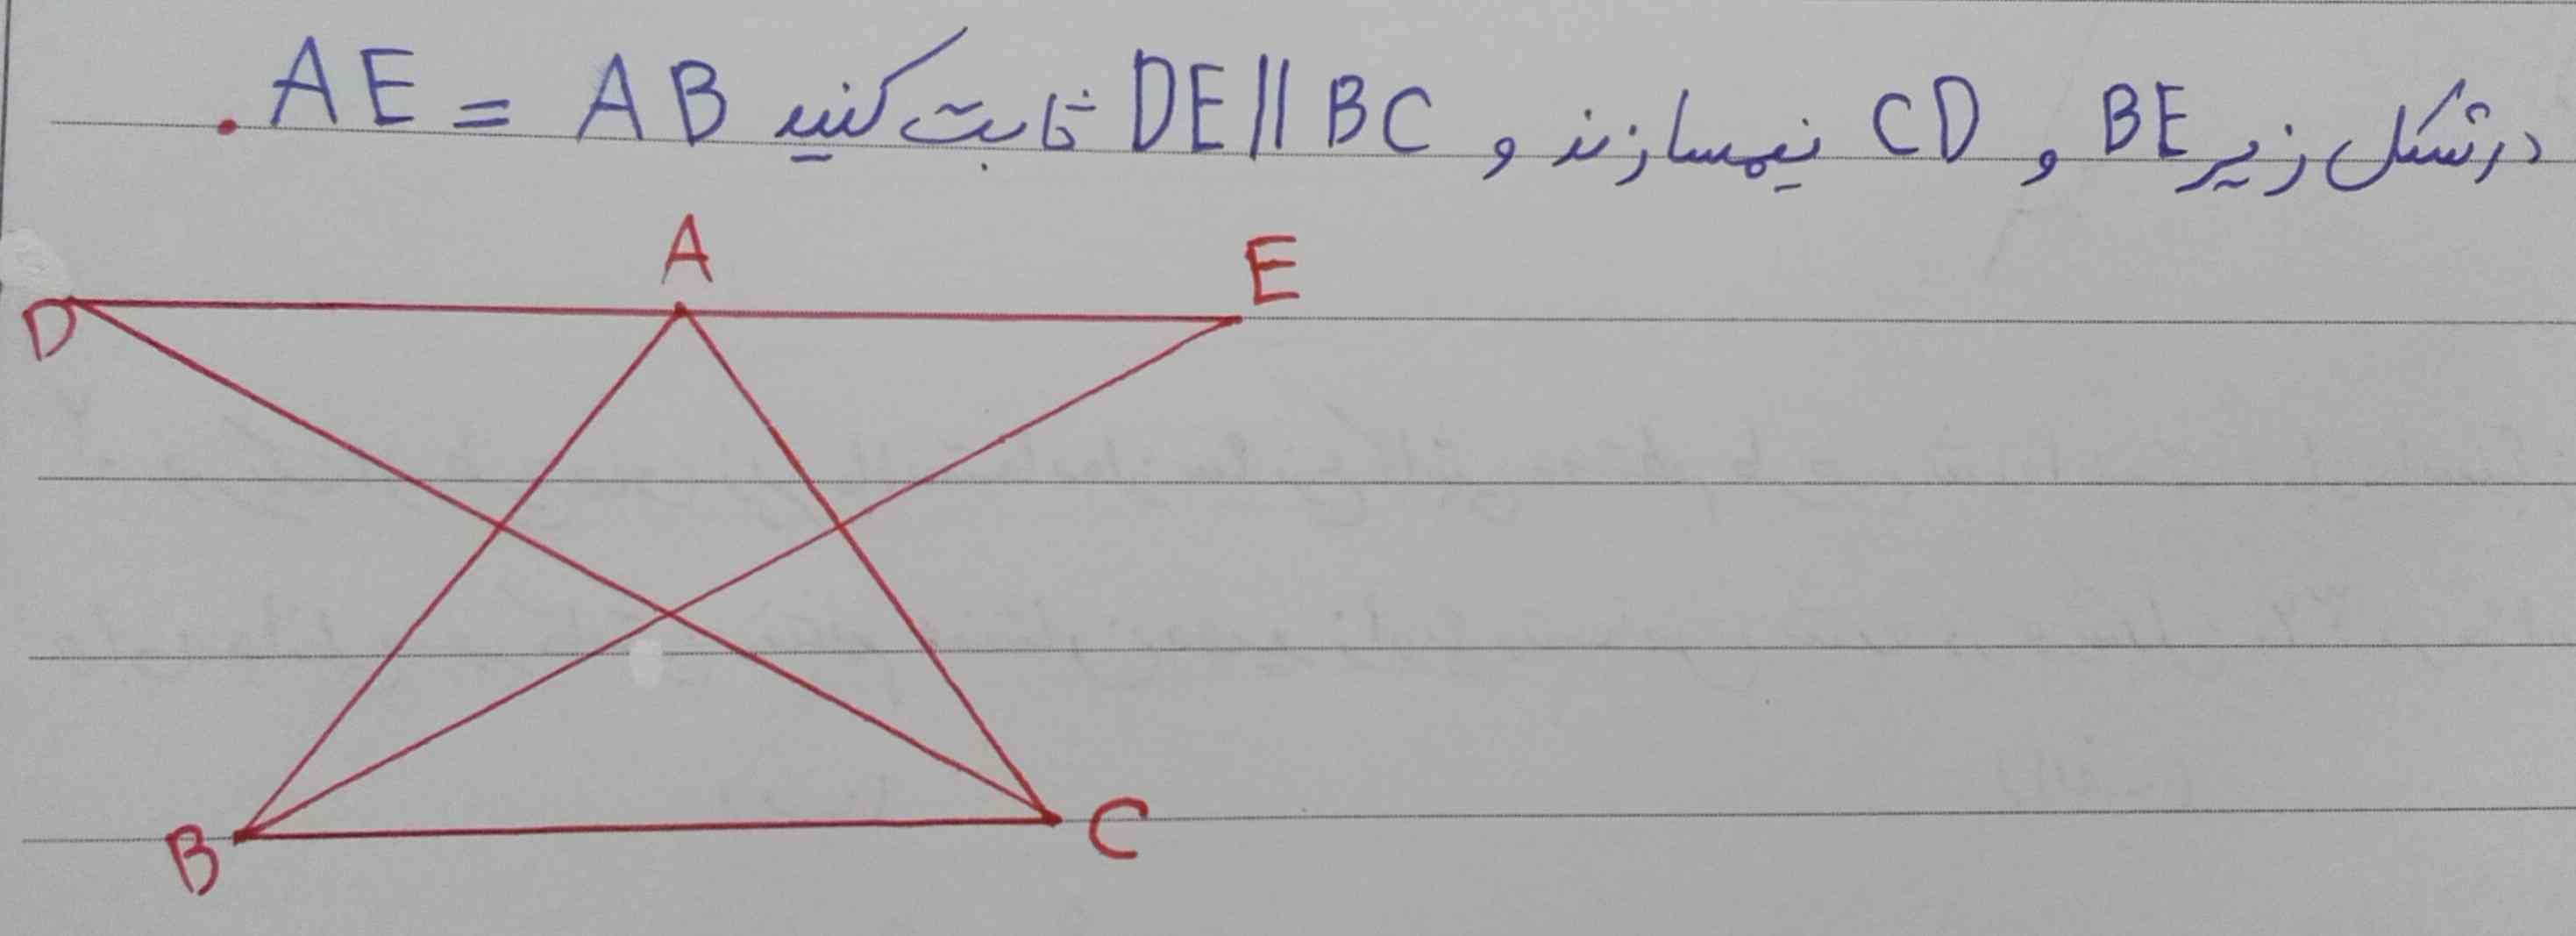 در شکل زیر BE و CD نیمسازند و DE || BC ثابت کنید AE = AB .
A
E
D
B
C